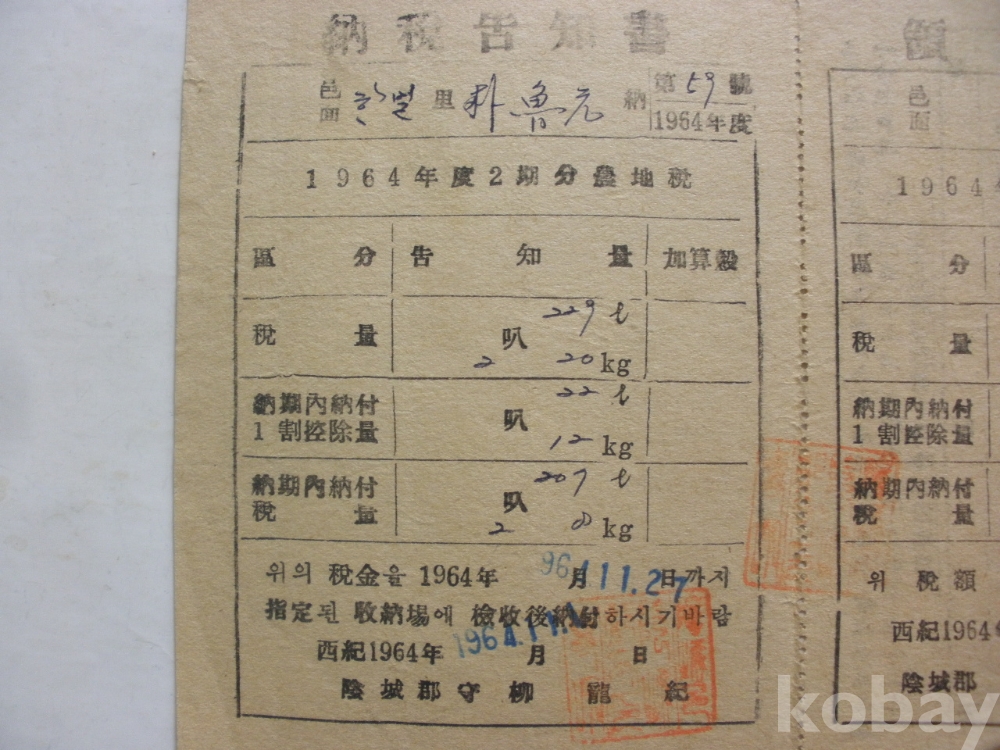 納稅告知書
邑
面
里 朴魯元 納
第 59 號
1964年度
1964年度2期分農地稅
區分 告知量 加算穀
稅量 229 ℓ
叭
2 20 kg
納期內納付
1割控除量
22 ℓ
叭
12 kg
納期內納付
稅量
207 ℓ
叭
2 8 kg
위의 稅金을 1964年 月 日까지
1964.11.27
指定된 收納場에 檢收後納付하시기바람
西紀1964年 月 日
陰城郡守柳龍紀
領
邑
面
1964
區分
稅量
納期內納付
1割控除量
納期內納付
稅量
위 稅額
西紀1964年
陰城郡
kobay